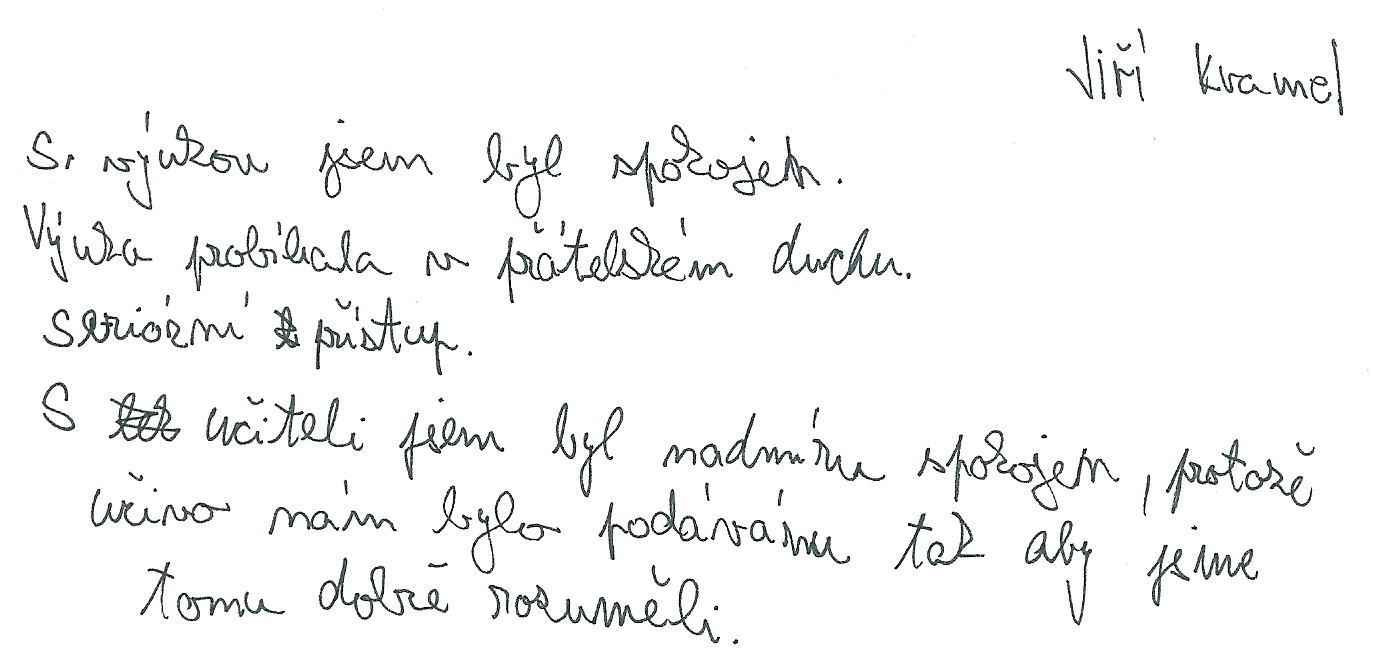 Jiří Kramel
S výukou jsem byl spokojen.
Výuka probíhala v přátelském duchu.
Seriózní přístup.
S učiteli jsem byl nadmíru spokojen, protože
učivo nám bylo podávánu tak aby jsme
tomu dobře rozuměli.